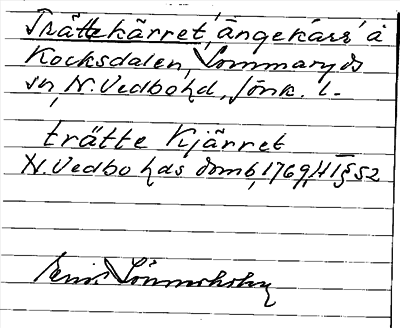 Trättekärret, ängekärr å
Kocksdalen, Lommaryds
sn, N. Vedbo hd, Jönk. l.
trätte Kjärret
N. Vedbo hds domb, 1769, HT § 52